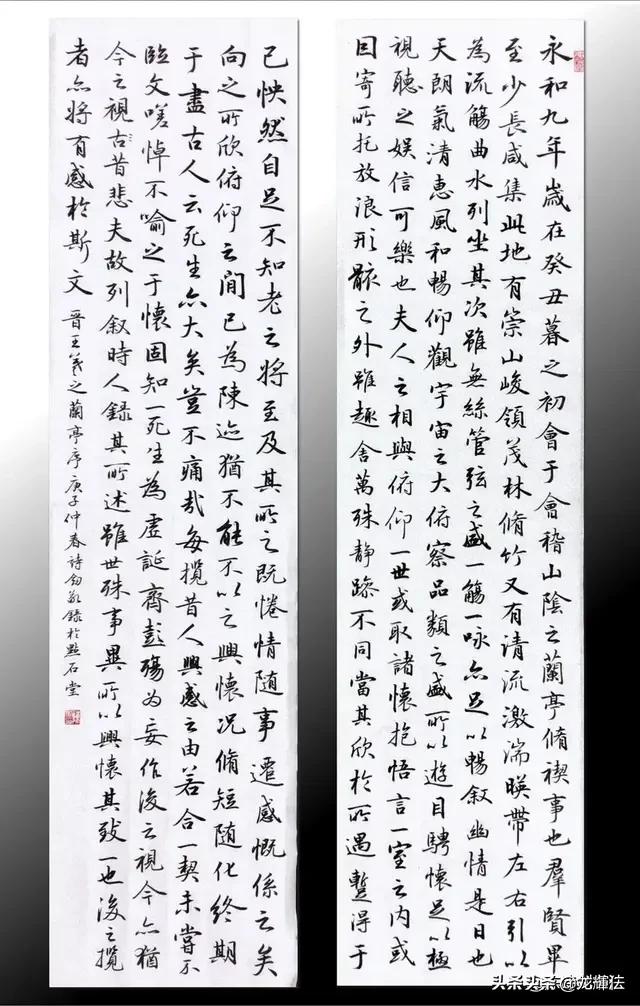 永和九年歲在癸丑暮之初會于會稽山陰之蘭亭脩禊事也羣賢畢
至少長咸集此地有崇山峻領茂林脩竹又有清流激湍暎帶左右引以
為流觴曲水列坐其次雖無絲管弦之盛一觴一詠亦足以暢叙幽情是日也
天朗氣清惠風和暢仰觀宇宙之大俯察品類之盛所以遊目騁懷足以極
視聽之娛信可樂也夫人之相與俯仰一世或取諸懷抱悟言一室之內或
因寄所托放浪形骸之外雖趣舍萬殊静躁不同當其欣於所遇蹔得于
己怏然自足不知老之將至及其所之既惓情随事遷感慨係之矣
向之所欣俯仰之間已為陳迹猶不能不以之興懷况脩短随化終期
于盡古人云死生亦大矣豈不痛哉每攬昔人興感之由若合一契未嘗不
臨文嗟悼不喻之于懷固知一死生為虛誕齊彭殤為妄作後之視今亦猶
今之視古昔悲夫故列叙時人録其所述雖世殊事異所以興懷其致一也後之攬
者亦將有感於斯文 晋王羲之蘭亭序庚子仲春詩鈞敬録於點石堂
头条 @龙輝法